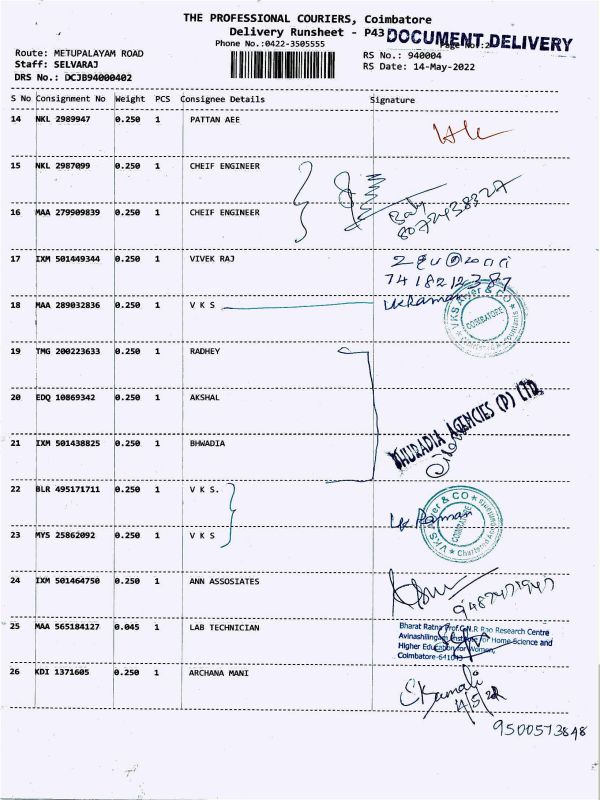 THE PROFESSIONAL COURIERS, Coimbatore
Delivery Runsheet - P43
DOCUMENT DELIVERY
Phone No.:0422-3505555
Page No.:2
Route: METUPALAYAM ROAD
RS No.: 940004
Staff: SELVARAJ
RS Date: 14-May-2022
DRS No.: DCJB94000402
S No Consignment No Weight PCS Consignee Details Signature
14 NKL 2989947 0.250 1 PATTAN AEE
15 NKL 2987099 0.250 1 CHEIF ENGINEER
16 MAA 279909839 0.250 1 CHEIF ENGINEER
17 IXM 501449344 0.250 1 VIVEK RAJ
7418212387
18 MAA 289032836 0.250 1 V K S
VKS Aiyer & CO
COIMBATORE
Chartered Accountants
19 TMG 200223633 0.250 1 RADHEY
20 EDQ 10869342 0.250 1 AKSHAL
21 IXM 501438825 0.250 1 BHWADIA
BHURADIA AGENCIES (P) LTD
22 BLR 495171711 0.250 1 V K S.
VKS Aiyer & CO
COIMBATORE
Chartered Accountants
23 MYS 25862092 0.250 1 V K S
24 IXM 501464750 0.250 1 ANN ASSOSIATES
9487471947
25 MAA 565184127 0.045 1 LAB TECHNICIAN
Bharat Ratna Prof.C.N.R Rao Research Centre
Avinashilingam Institute for Home Science and
Higher Education for Women,
Coimbatore-641043
26 KDI 1371605 0.250 1 ARCHANA MANI
9500573848